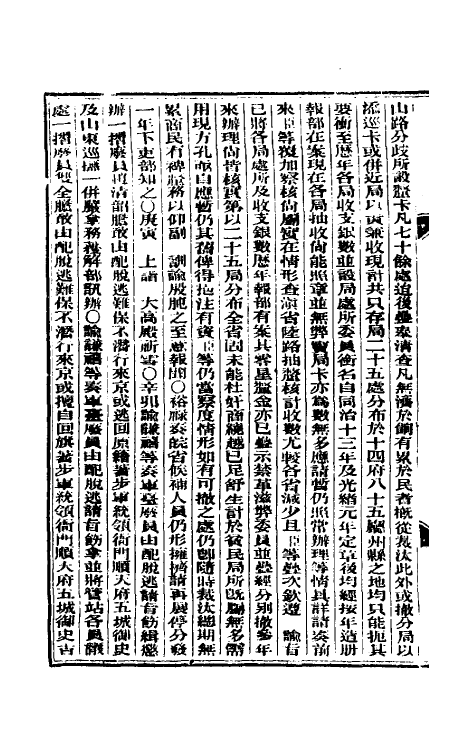 山路分歧所設釐卡凡七十餘處迨後疊奉淸查凡無濟於餉有累於民者槪從裁汰此外或撤分局以
添巡卡或併近局以資兼收現計共只存局二十五處分布於十四府八十五廳州縣之地均只能扼其
要衝至歷年各局收支銀數並設局處所委員銜名自同治十三年及光緖元年定章後均經按年造册
報部在案現在各局抽收尙能照章並無弊竇局卡亦爲數無多應請暫仍照常辦理等情具詳請奏前
來臣等覆加察核尙屬實在情形查滇省陸路抽釐核計收數尤較各省減少且臣等疊次欽遵　諭旨
已將各局處所及收支銀數歷年報部有案其零星釐金亦已疊示禁革滋弊委員並疊經分别撤參年
來辦理尙皆核實第以二十五局分布全省固未能杜奸商繞越已足舒生計於貧民局所旣屬無多需
用現方孔亟自應暫仍其舊俾得挹注有資臣等仍當察度情形如有可撤之處仍卽隨時裁汰總期無
累商民有裨釐務以仰副　訓諭殷肫之至意報聞〇裕祿奏皖省候補人員仍形擁擠請再展停分發
一年下吏部知之〇庚寅　上詣　大高殿祈雪〇辛卯諭謙禧等奏軍臺廢員由配脫逃請旨飭緝懲
辦一摺廢員馮淸韶膽敢由配脫逃難保不潛行來京或逃回原籍著步軍統領衙門順天府五城御史
及山東巡撫一併嚴拿務獲解部訊辦〇諭謙禧等奏軍臺廢員由配脫逃請旨飭拿並將管站各員議
處一摺廢員雙全膽敢由配脫逃難保不潛行來京或擅自回旗著步軍統領衙門順天府五城御史吉